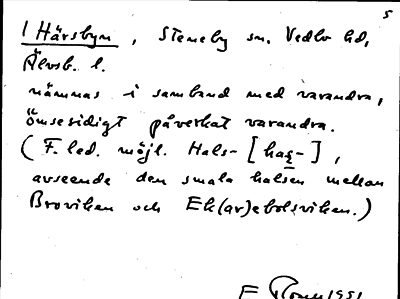 5
1 Härsbyn, Steneby sn, Vedbo hd,
Älvsb. l.
nämnas i samband med varandra,
ömsesidigt påverkat varandra.
(F. led. möjl. Hals- [has-],
avseende den smala halsen mellan
Broviken och Ek(ar)ebolsviken.)
E 1951